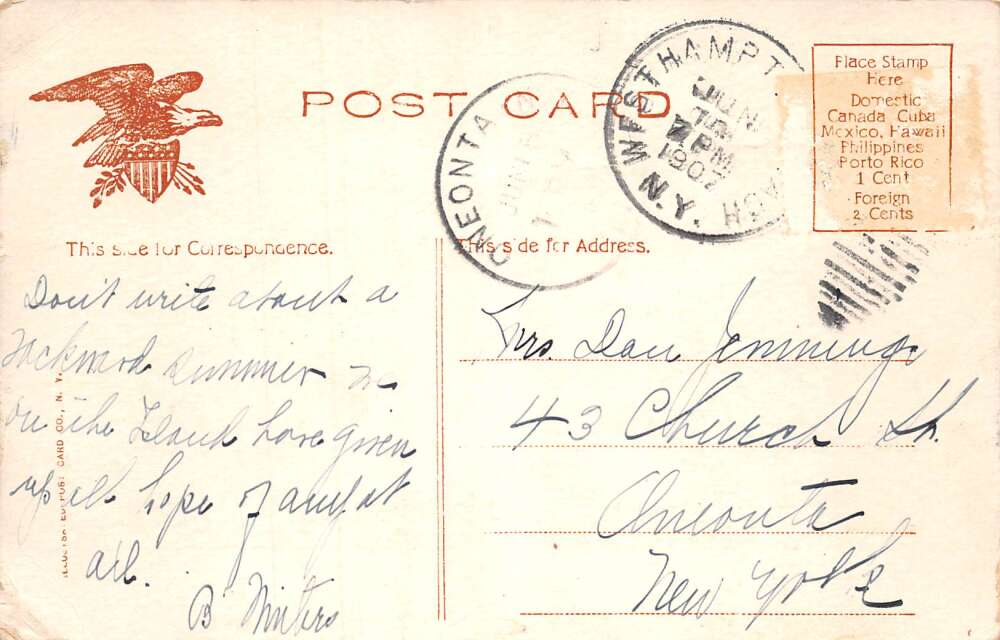 POST CARD
WESTHAMPT ACH
N.Y.
JUN
7 PM
1907
ONEONTA N
JUN
Place Stamp
Here
Domestic
Canada Cuba
Mexico, Hawaii
Philippines
Porto Rico
1 Cent
Foreign
2 Cents
This side for Correspondence.
This side for Address.
Don't write about a
backward summer we
on the Island have given
up all hope of any at
all.
B Winters
Mrs. Dan Jennings
43 Church St.
Oneonta
New York
ILLUSTRATED POST CARD CO., N. Y.